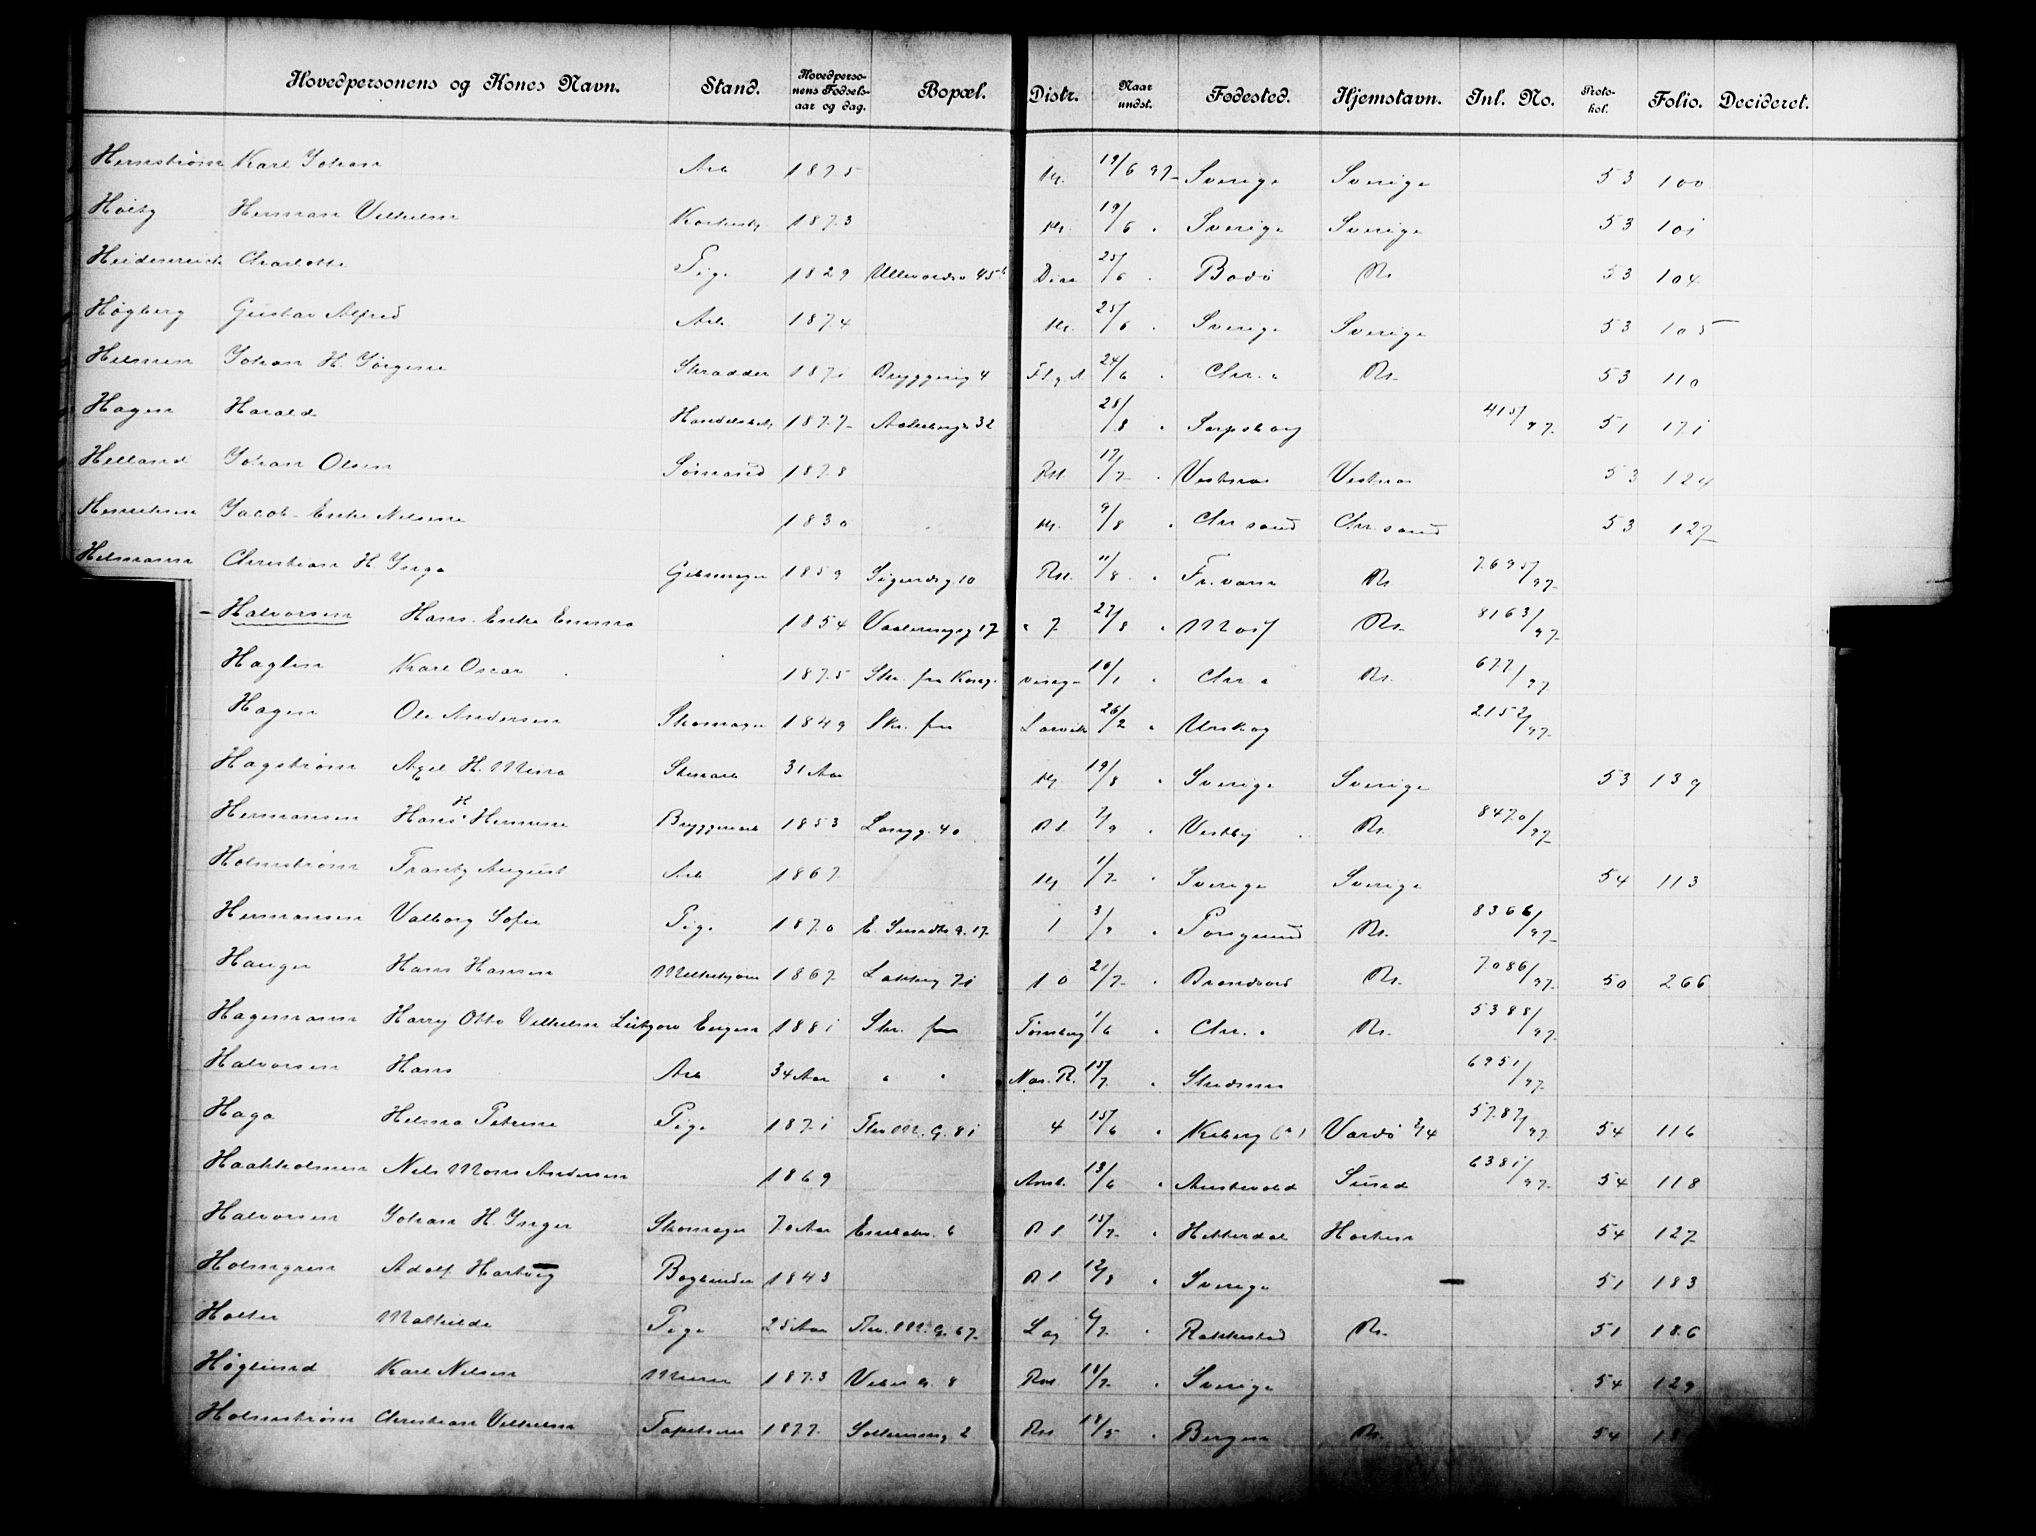 Hovedpersonens og Kones Navn. Stand. Hovedpersonens Fødselsaar og dag. Bopæl. Distr. Naar undst. Fødested. Hjemstavn. Inl. No. Protokol. Folio. Decideret.
Hernstrøm Karl Johan Arb 1875 19/6 97 Sverige Sverige 53 100
Høiby Herman Vilhelm 1873 19/6 " Sverige Sverige 53 101
Heidenreich Charlotte Pige 1829 Ullevoldsv 45 25/6 " Bodø Kr. 53 104
Høgberg Gustav Alfred Arb 1874 25/6 " Sverige Sverige 53 105
Helmen Johan H. Jørgine Skrædder 187 Bryggerig 4 24/6 " Chr.a Kr. 53 110
Hagen Harald 1877 Aakebergv 32 28/8 " Sarpsborg 415/97 51 171
Helland Johan Olsen Sømand 1878 17/7 " Vestnes Vestnes 53 124
Henriksen Jacob Enke Nilsine 1830 9/8 " Chr.sand Chr.sand 53 127
Helmann Christian H. Inga Gibsmager 1859 Sigurdsg. 10 11/8 " Fr.værn Kr. 7695/97
Halvorsen Hans Enke Emma 1854 Vaalerengg 17 " 7 27/8 " Moss Kr. 8163/97
Haglen Karl Oscar 1875 Skr. fra Kongsvinger 16/1 " Chr.a Kr. 677/97
Hagen Ole Andersen Skomager 1849 Skr. fra Larvik 26/2 " Urskog 2152/97
Hagstrøm Axel H. Mina Stenarb 31 Aar 19/8 " Sverige Sverige 53 139
Hermansen Hans H. Hermine Bryggeriarb 1853 Langg. 40 7/9 " Vestby Kr. 8470/97
Holmstrøm Frantz August Arb 1867 1/7 " Sverige Sverige 54 113
Hermansen Valborg Sofie Pige 1870 E. Sundts g. 17 1 3/9 " Porsgrund Kr. 8366/97
Hauger Hans Hansen Melkekjører 1867 Lakkeg 71 10 21/7 " Brandvold Kr. 7086/97 50 266
Hagemann Harry Otto Vilhelm Lütjow Eugen 1881 Skr. fra Tønsberg 1/6 " Chr.a Kr. 5388/97
Halvorsen Hans Arb 34 Aar " " Nes. R. 15/7 " Skedsmo 6951/97
Haga Helma Petrine Pige 1871 Thv. M. G. 81 4 15/6 " Kiberg 6/1 Vardø 2/4 5787/97 54 116
Haakholmen Nils Mons Andersen 1869 13/6 " Austevold Sund 6381/97 54 118
Halvorsen Johan H. Inger Skomager 70 Aar 6 15/7 " Hitterdal Horten 54 127
Holmgren Adolf Hartvig Bogbinder 1843 12/8 " Sverige — 51 183
Holter Mathilde Pige 25 Aar Thv. M. G. 67 6/7 " Rakkestad Kr. 51 186
Høglund Karl Nilsen Murer 1873 Vibes g. 8 18/7 " Sverige 54 129
Holmstrøm Christian Vilhelm Tapetserer 1877 2 18/5 " Bergen Kr. 54